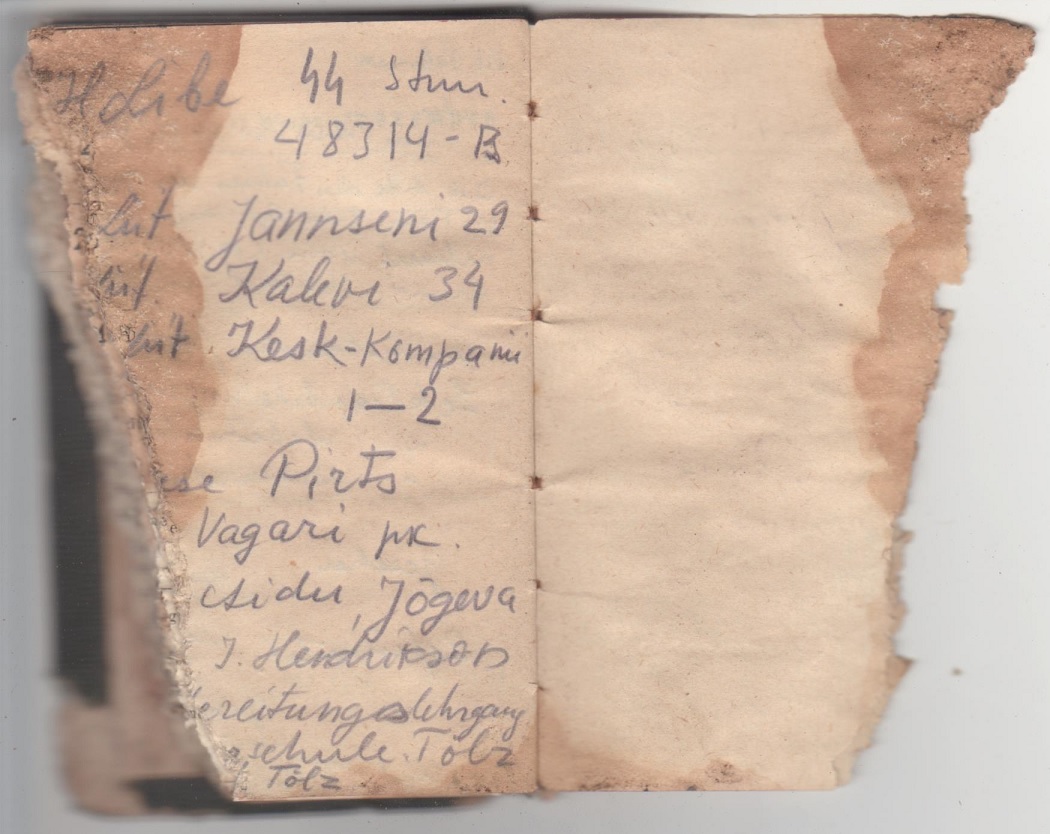 44 Stm.
48314-B
Jannseni 29
Kalevi 34
Kesk-Kompanii
1—2
Pirts
Vagari pk.
Jõgeva
J. Hendrikson
ereitungslehrgang
schule Tölz
Tölz